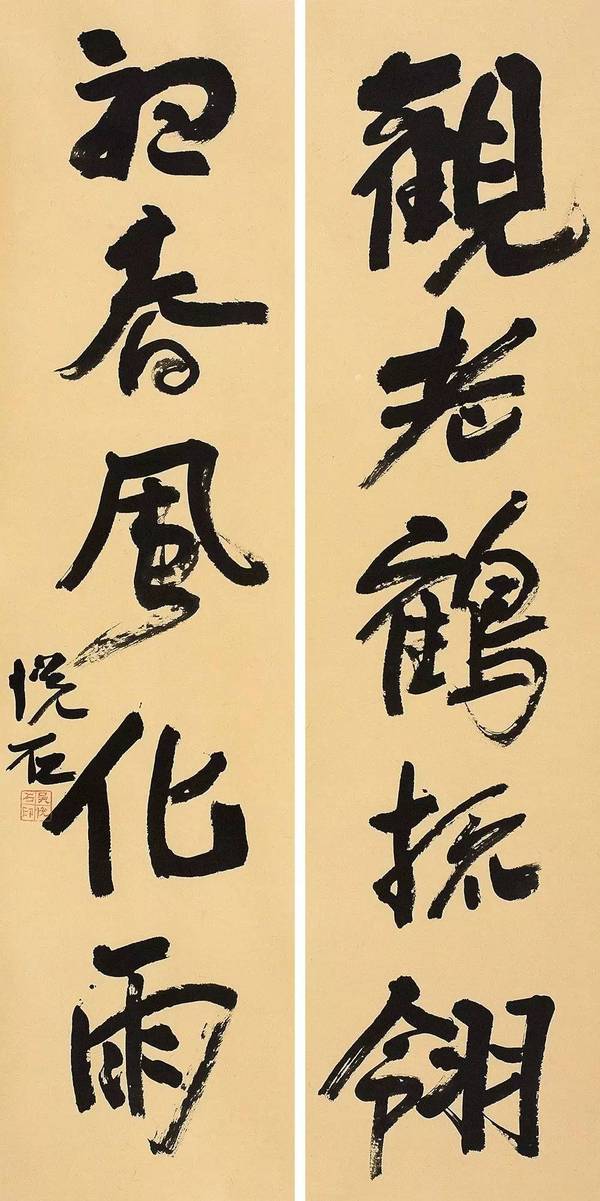 觀老鶴振翎
春風化雨
悅石
吳悅石印